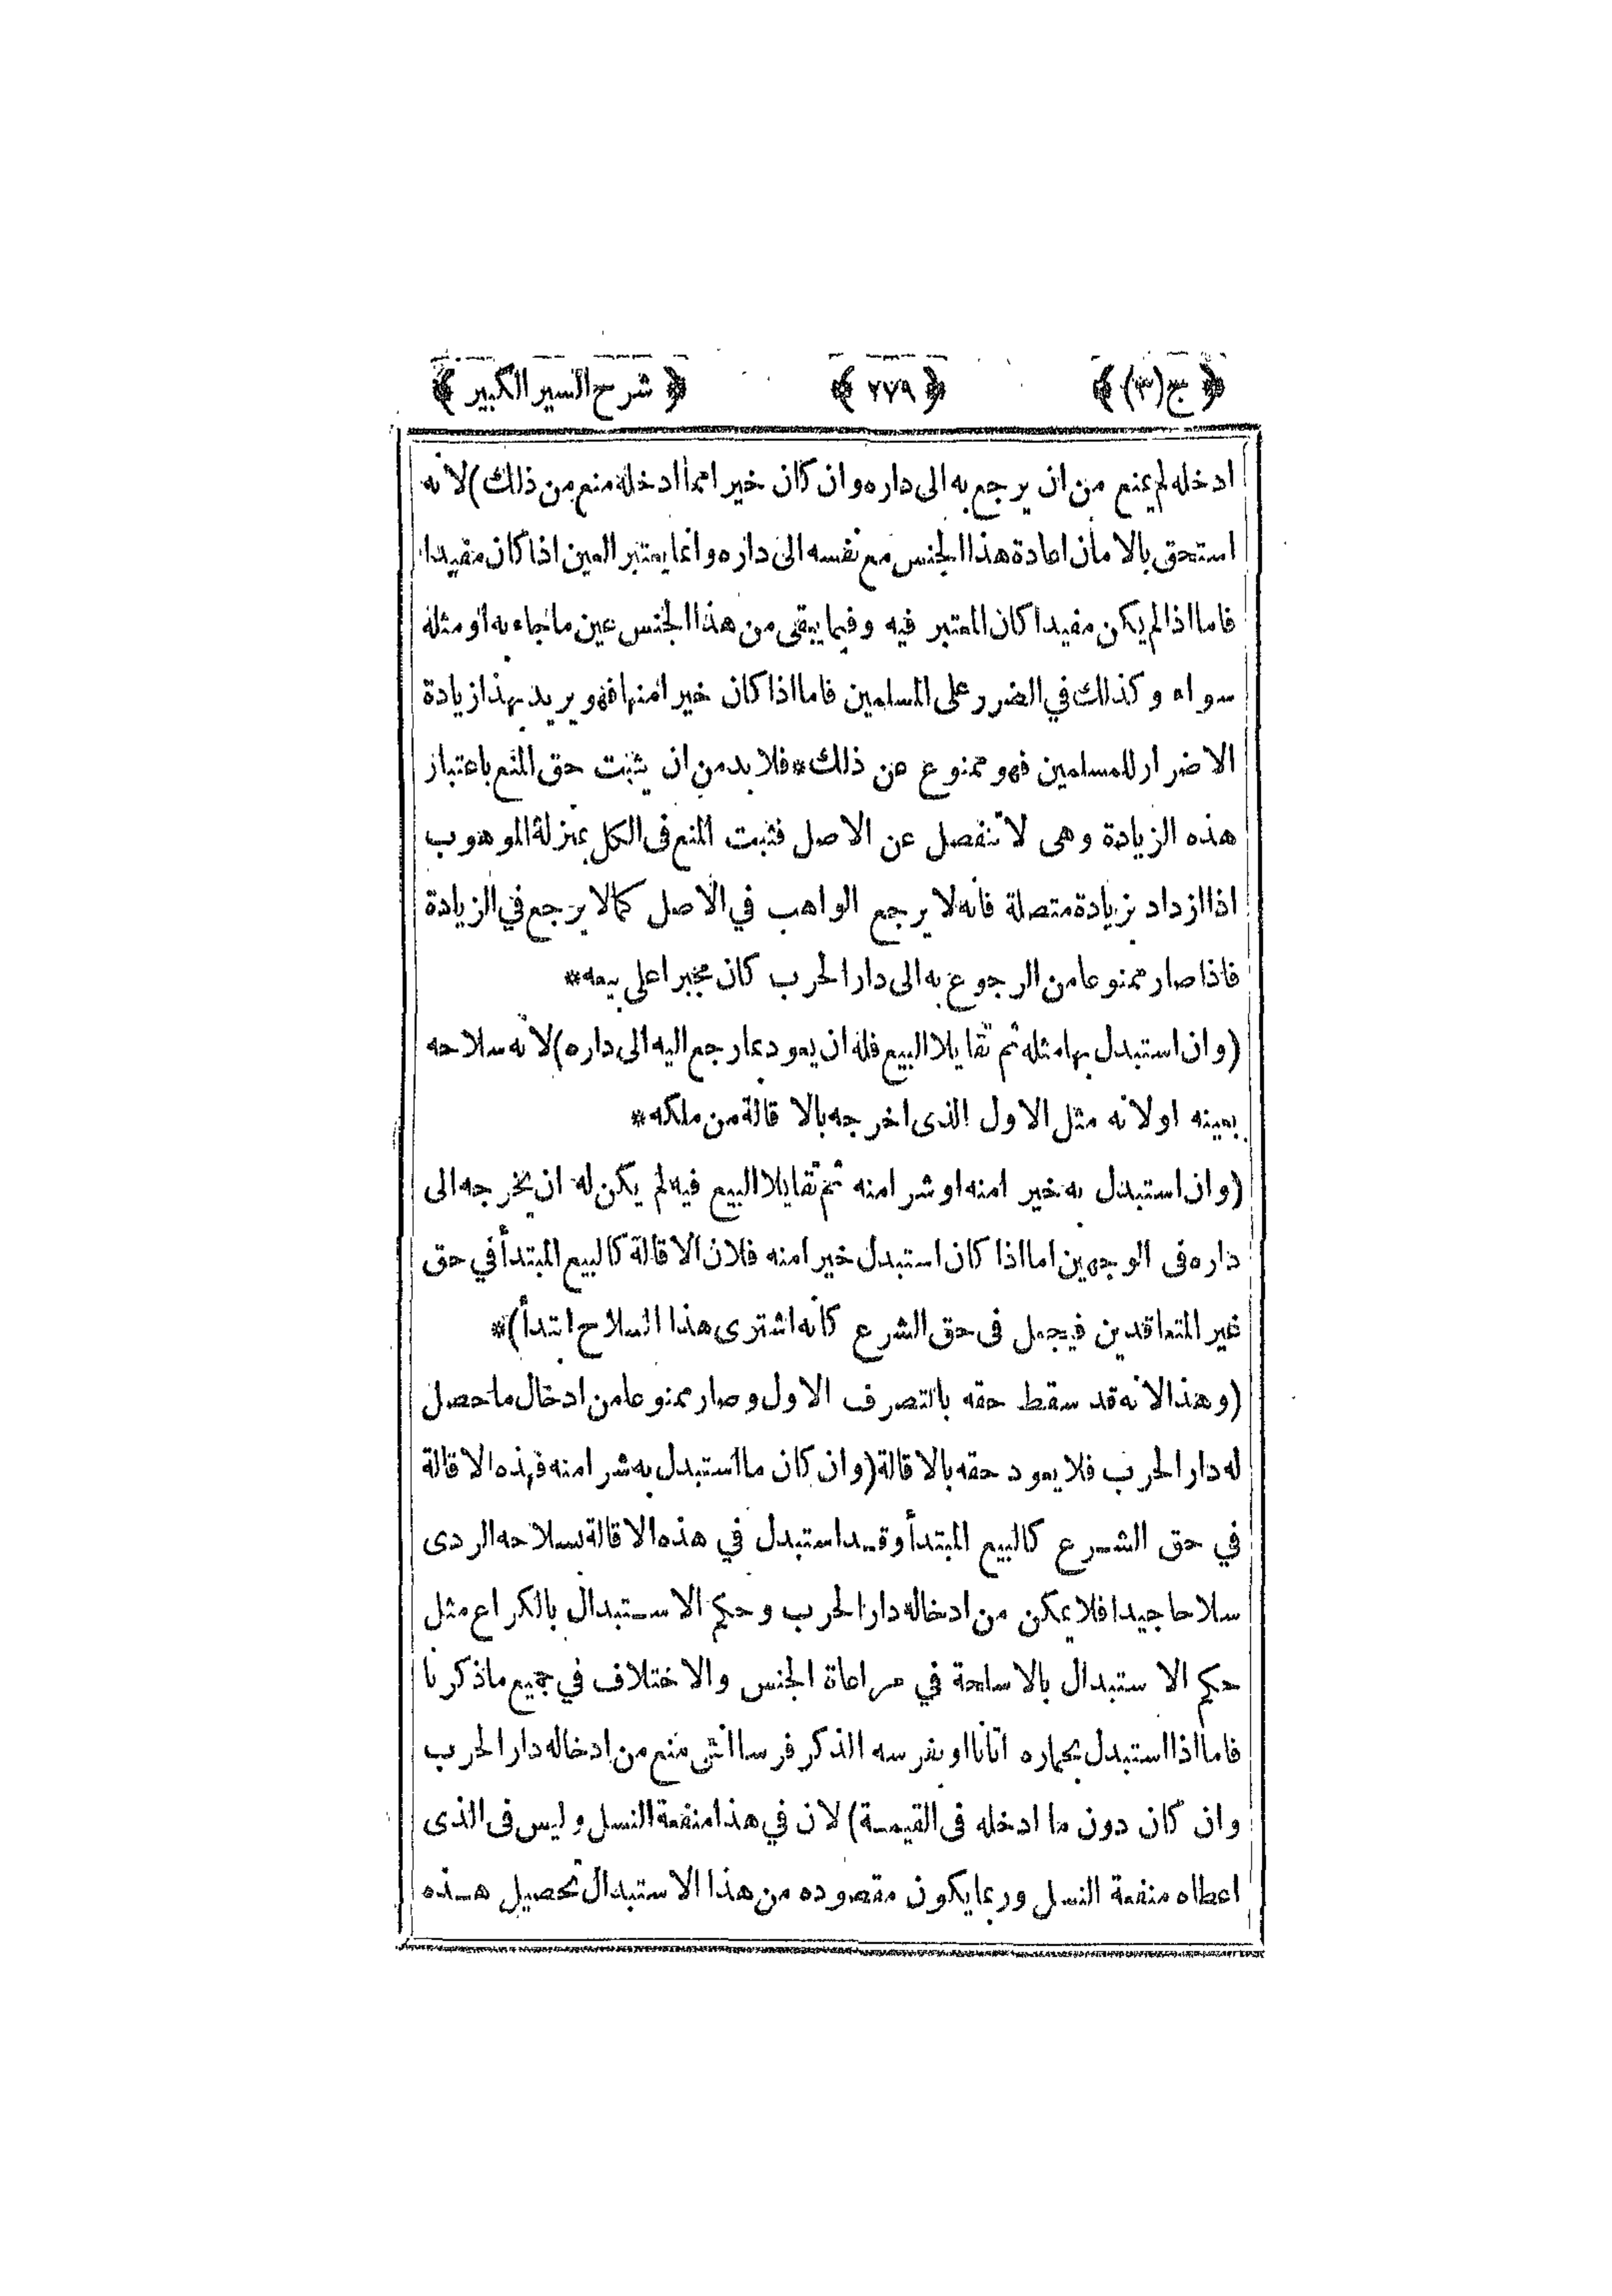 ﴿ ج (٣) ﴾ ﴿ ٢٧٩ ﴾ ﴿ شرح السير الكبير ﴾
ادخله لم يمنع من ان يرجع به الى داره وان كان خيرا مما ادخله منع من ذلك) لانه
استحق بالامان اعادة هذا الجنس مع نفسه الى داره وانما يعتبر العين اذا كان مفيدا
فاما اذا لم يكن مفيدا كان المعتبر فيه وفيما يبقى من هذا الجنس عين ما جاء به او مثله
سواء وكذلك في الضرر على المسلمين فاما اذا كان خيرا منها فهو يريد بهذا زيادة
الاضرار للمسلمين فهو ممنوع عن ذلك * فلابد من ان يثبت حق المنع باعتبار
هذه الزيادة وهى لا تنفصل عن الاصل فثبت المنع فى الكل بمنزلة الموهوب
اذا ازداد بزيادة متصلة فانه لا يرجع الواهب في الاصل كما لا يرجع في الزيادة
فاذا صار ممنوعا من الرجوع به الى دار الحرب كان مجبرا على بيعه *
(وان استبدل بها مثله ثم تقايلا البيع فله ان يعود بما رجع اليه الى داره) لانه سلاحه
بعينه او لانه مثل الاول الذى اخرجه بالاقالة من ملكه *
(وان استبدل به خيرا منه او شرا منه ثم تقايلا البيع فيه لم يكن له ان يخرجه الى
داره فى الوجهين اما اذا كان استبدل خيرا منه فلان الاقالة كالبيع المبتدأ في حق
غير المتعاقدين فيجعل فى حق الشرع كانه اشترى هذا السلاح ابتدأ) *
(وهذا لانه قد سقط حقه بالتصرف الاول وصار ممنوعا من ادخال ما حصل
له دار الحرب فلا يعود حقه بالاقالة (وان كان ما استبدل به شرا منه فهذه الاقالة
في حق الشرع كالبيع المبتدأ وقد استبدل في هذه الاقالة بسلاحه الردى
سلاحا جيدا فلا يمكن من ادخاله دار الحرب وحكم الاستبدال بالكراع مثل
حكم الاستبدال بالاسلحة في مراعاة الجنس والاختلاف في جميع ما ذكرنا
فاما اذا استبدل بحماره اتانا او بفرسه الذكر فرسا انثى منع من ادخاله دار الحرب
وان كان دون ما ادخله فى القيمة) لان في هذا منفعة النسل وليس فى الذى
اعطاه منفعة النسل وربما يكون مقصوده من هذا الاستبدال تحصيل هذه